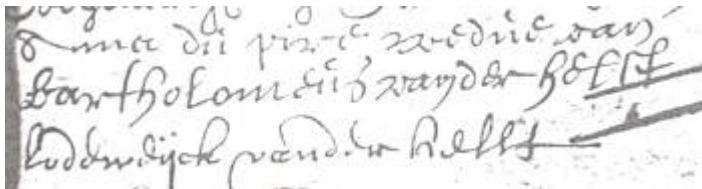 Anna du pire wedue van
bartholomeus vander helst
Lodeweijck vander helst